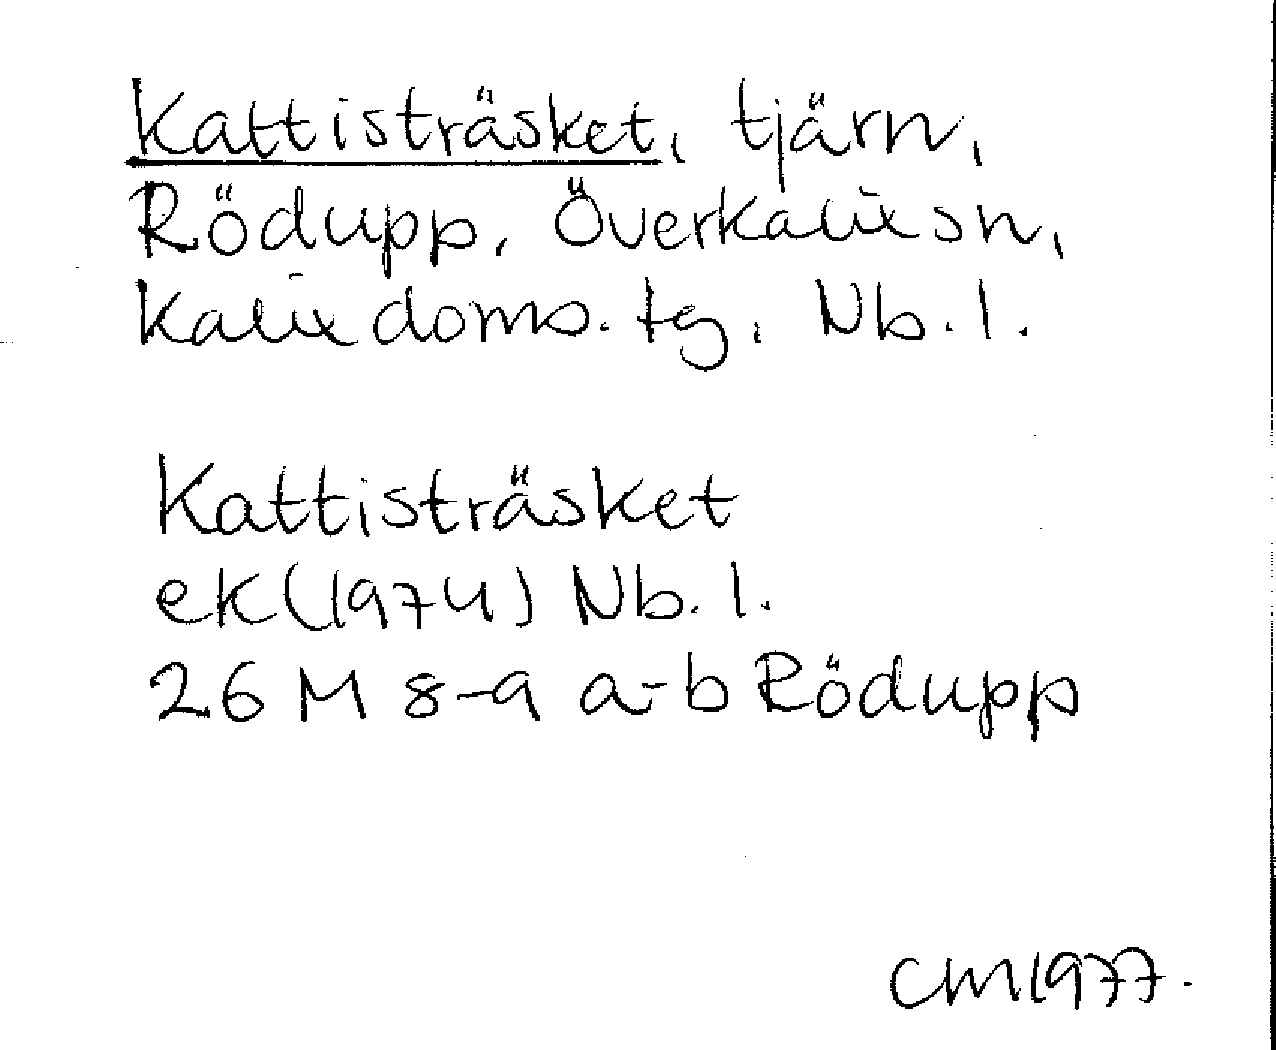 Kattisträsket, tjärn,
Rödupp, Överkalix sn,
Kalix doms. tg, Nb. l.
Kattisträsket
ek (1974) Nb. l.
26 M 8-9 a-b Rödupp
CM 1977.